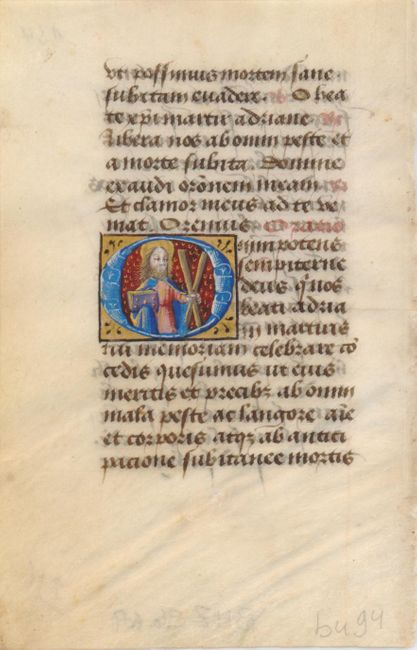 ut possimus mortem sane
subitam evadere. O bea
te xp̄i martir adriane
libera nos ab omni peste et
a morte subita. Domine
exaudi orōnem meam
Et clamor meus ad te ve
niat. Oremus Oracio
Omnipotens
sempiterne
deus qui nos
beati adria
ni martiris
tui memoriam celebrare cō
cedis quesumus ut eius
meritis et precibz ab omni
mala peste ac langore aīe
et corporis atqz ab antici
pacione subitanee mortis
bu94